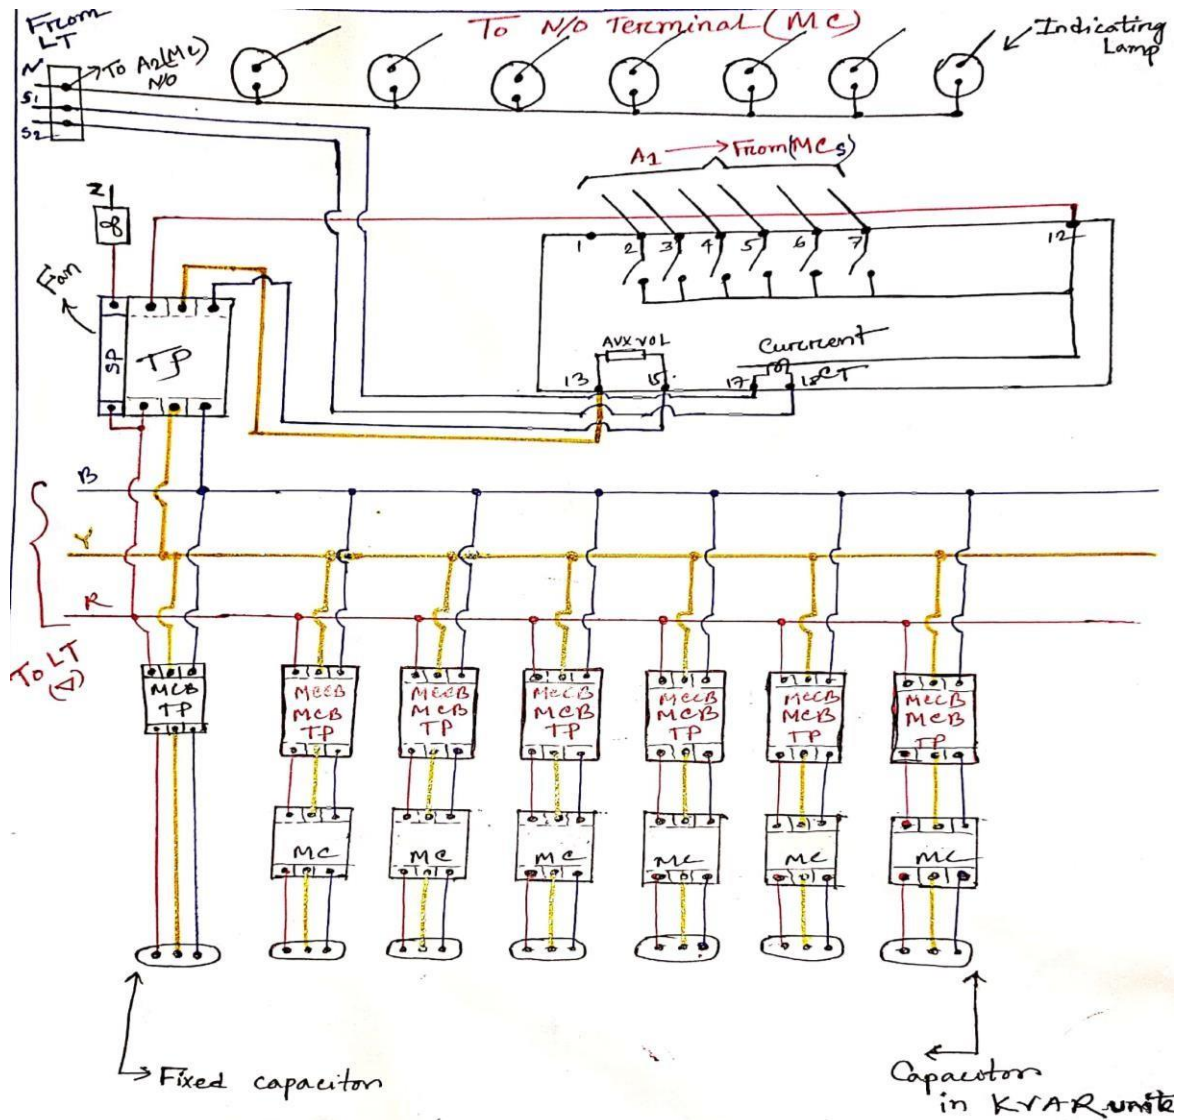 From
LT
To N/O Terminal (MC)
Indicating
Lamp
N
To A2(MC)
N/O
S1
S2
A1 → From(MCs)
N
Fan
1 2 3 4 5 6 7 12
SP
TP
AUX VOL
Current
13 15 17 18 CT
B
Y
R
To LT
(△)
MCB
TP
MCCB
MCB
TP
MCCB
MCB
TP
MCCB
MCB
TP
MCCB
MCB
TP
MCCB
MCB
TP
MCCB
MCB
TP
MC MC MC MC MC MC
Fixed capacitor
Capacitor
in KVAR unite